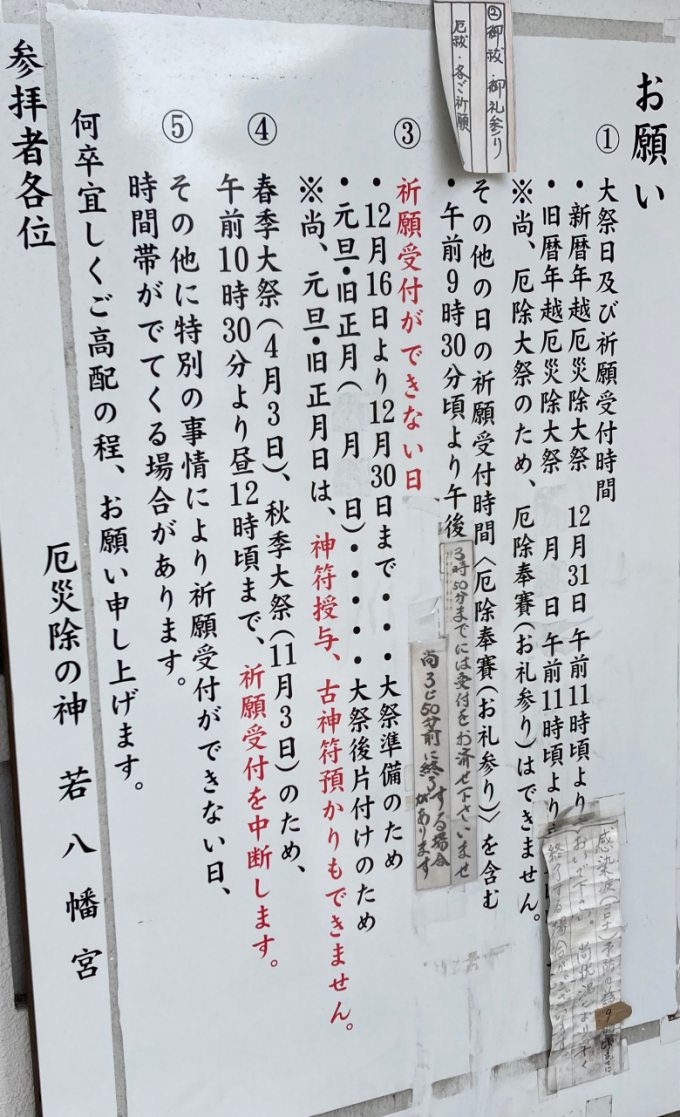 お願い
① 大祭日及び祈願受付時間
・新暦年越厄災除大祭 12月31日 午前11時頃より
・旧暦年越厄災除大祭 月 日 午前11時頃より
※尚、厄除大祭のため、厄除奉賽(お礼参り)はできません。
②御祓・御礼参り
厄祓・各ご祈願
その他の日の祈願受付時間〈厄除奉賽(お礼参り)〉を含む
・午前9時30分頃より午後
3時50分までには受付をお済せ下さいませ
尚3じ50分前に終了する場合
があります
③ 祈願受付ができない日
・12月16日より12月30日まで・・・大祭準備のため
・元旦・旧正月( 月 日)・・・・・大祭後片付けのため
※尚、元旦・旧正月日は、神符授与、古神符預かりもできません。
④ 春季大祭(4月3日)、秋季大祭(11月3日)のため、
午前10時30分より昼12時頃まで、祈願受付を中断します。
⑤ その他に特別の事情により祈願受付ができない日、
時間帯がでてくる場合があります。
何卒宜しくご高配の程、お願い申し上げます。
厄災除の神 若八幡宮
参拝者各位